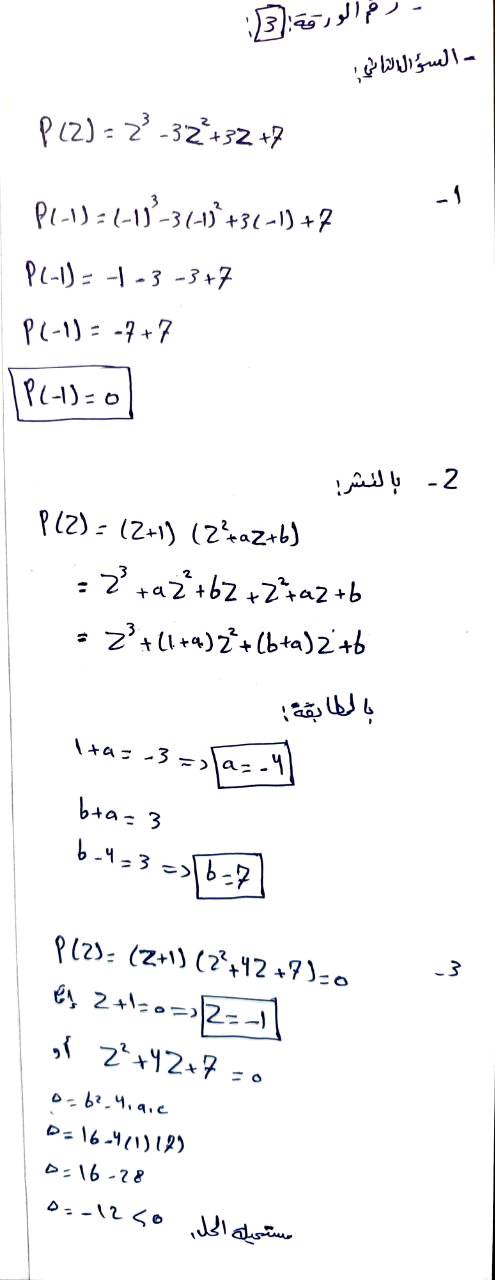 - رقم الورقة: 3:
- السؤال الثاني:
P(Z) = Z³ - 3Z² + 3Z + 7
-1
P(-1) = (-1)³ - 3(-1)² + 3(-1) + 7
P(-1) = -1 - 3 - 3 + 7
P(-1) = -7 + 7
P(-1) = 0
2- بالنشر:
P(Z) = (Z+1) (Z² + aZ + b)
= Z³ + aZ² + bZ + Z² + aZ + b
= Z³ + (1+a)Z² + (b+a)Z + b
بالمطابقة:
1+a = -3 => a = -4
b+a = 3
b-4 = 3 => b = 7
-3
P(Z) = (Z+1) (Z² + 4Z + 7) = 0
Z+1 = 0 => Z = -1
أو Z² + 4Z + 7 = 0
Δ = b² - 4.a.c
Δ = 16 - 4(1)(7)
Δ = 16 - 28
Δ = -12 < 0 مستحيلة الحل.